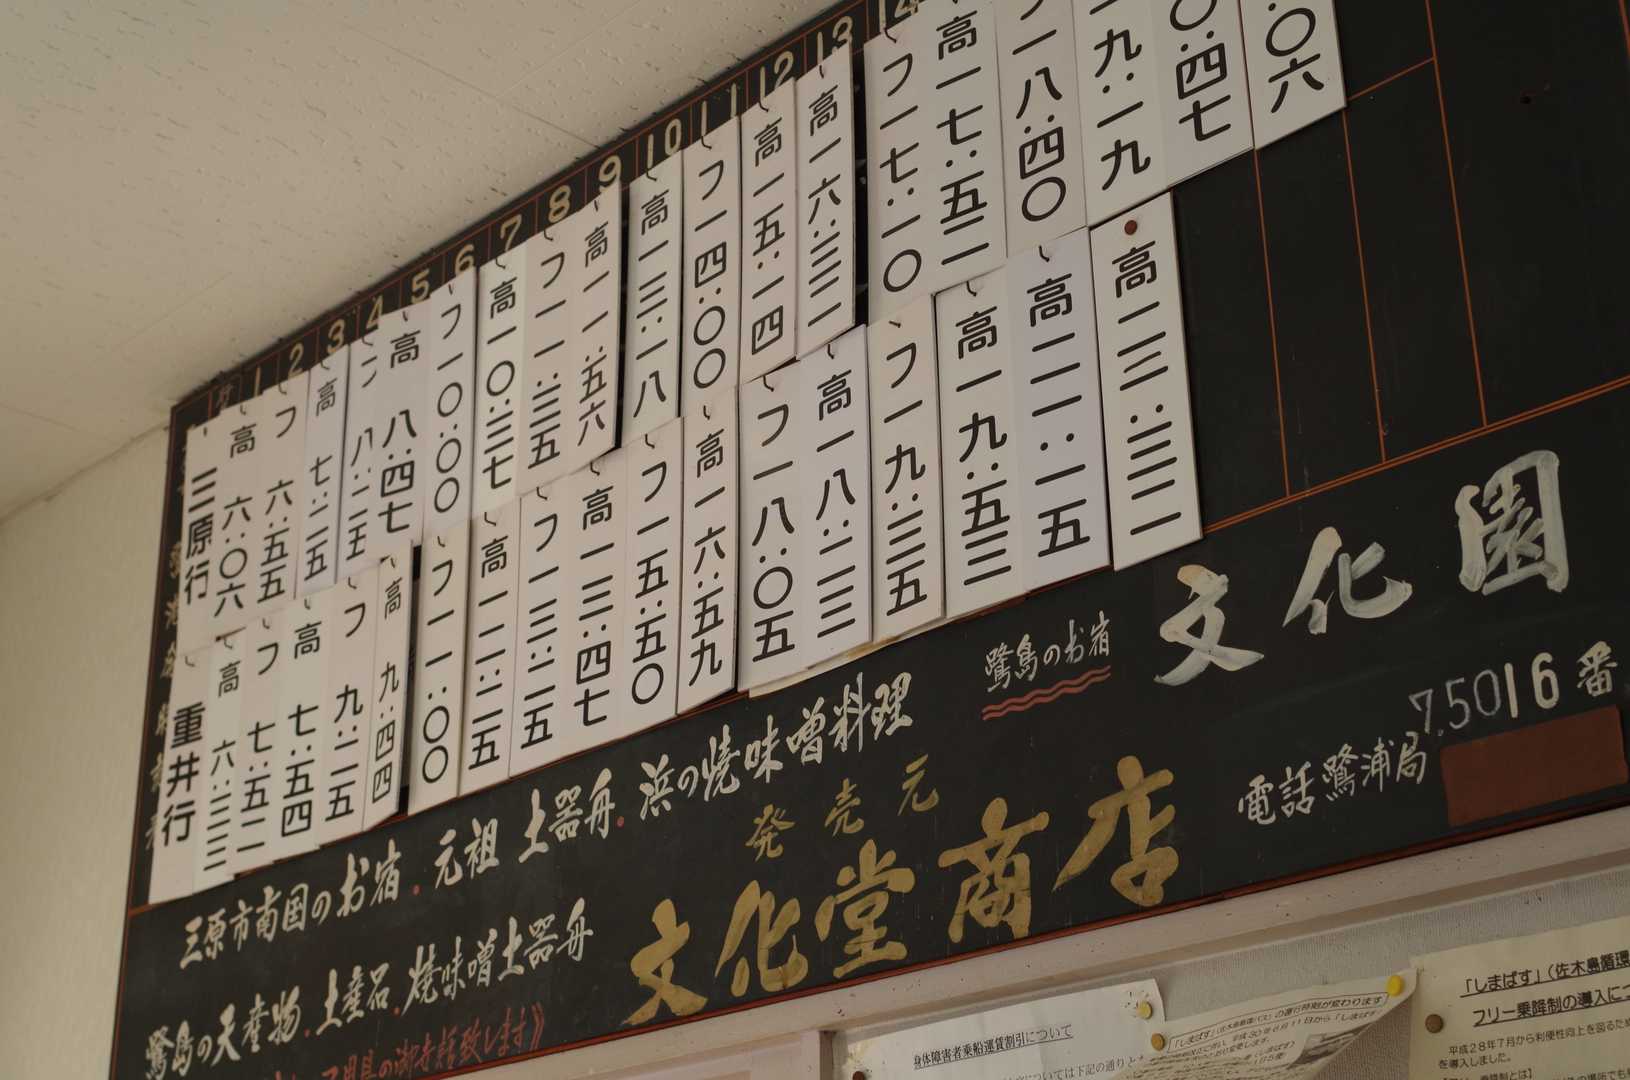 1 2 3 4 5 6 7 8 9 10 11 12 13 14
三原行
高 六:〇六
フ 六:五五
高 七:二五
フ 八:二五
高 八:四七
フ 一〇:〇〇
高 一〇:三七
フ 一一:三五
高 一一:五六
高 一三:一八
フ 一四:〇〇
高 一五:一四
高 一六:三二
フ 一七:一〇
高 一七:五二
フ 一八:四〇
一九:一九
〇:四七
:〇六
重井行
高 六:三三
フ 七:五二
高 七:五四
フ 九:二五
高 九:四四
フ 一一:〇〇
高 一一:二五
フ 一三:二五
高 一三:四七
フ 一五:五〇
高 一六:五九
フ 一八:〇五
高 一八:二三
フ 一九:三五
高 一九:五三
高 二一:一五
高 二三:三二
鷺島のお宿 文化園
三原市南国のお宿.元祖 土器舟.浜の焼味噌料理
鷺島の天産物.土産品.焼味噌土器舟
発売元
文化堂商店
電話鷺浦局 7.5016番
身体障害者乗船運賃割引について
「しまばす」(佐木島循環
フリー乗降制の導入に
平成28年7月から利便性向上を図るため
を導入しました。